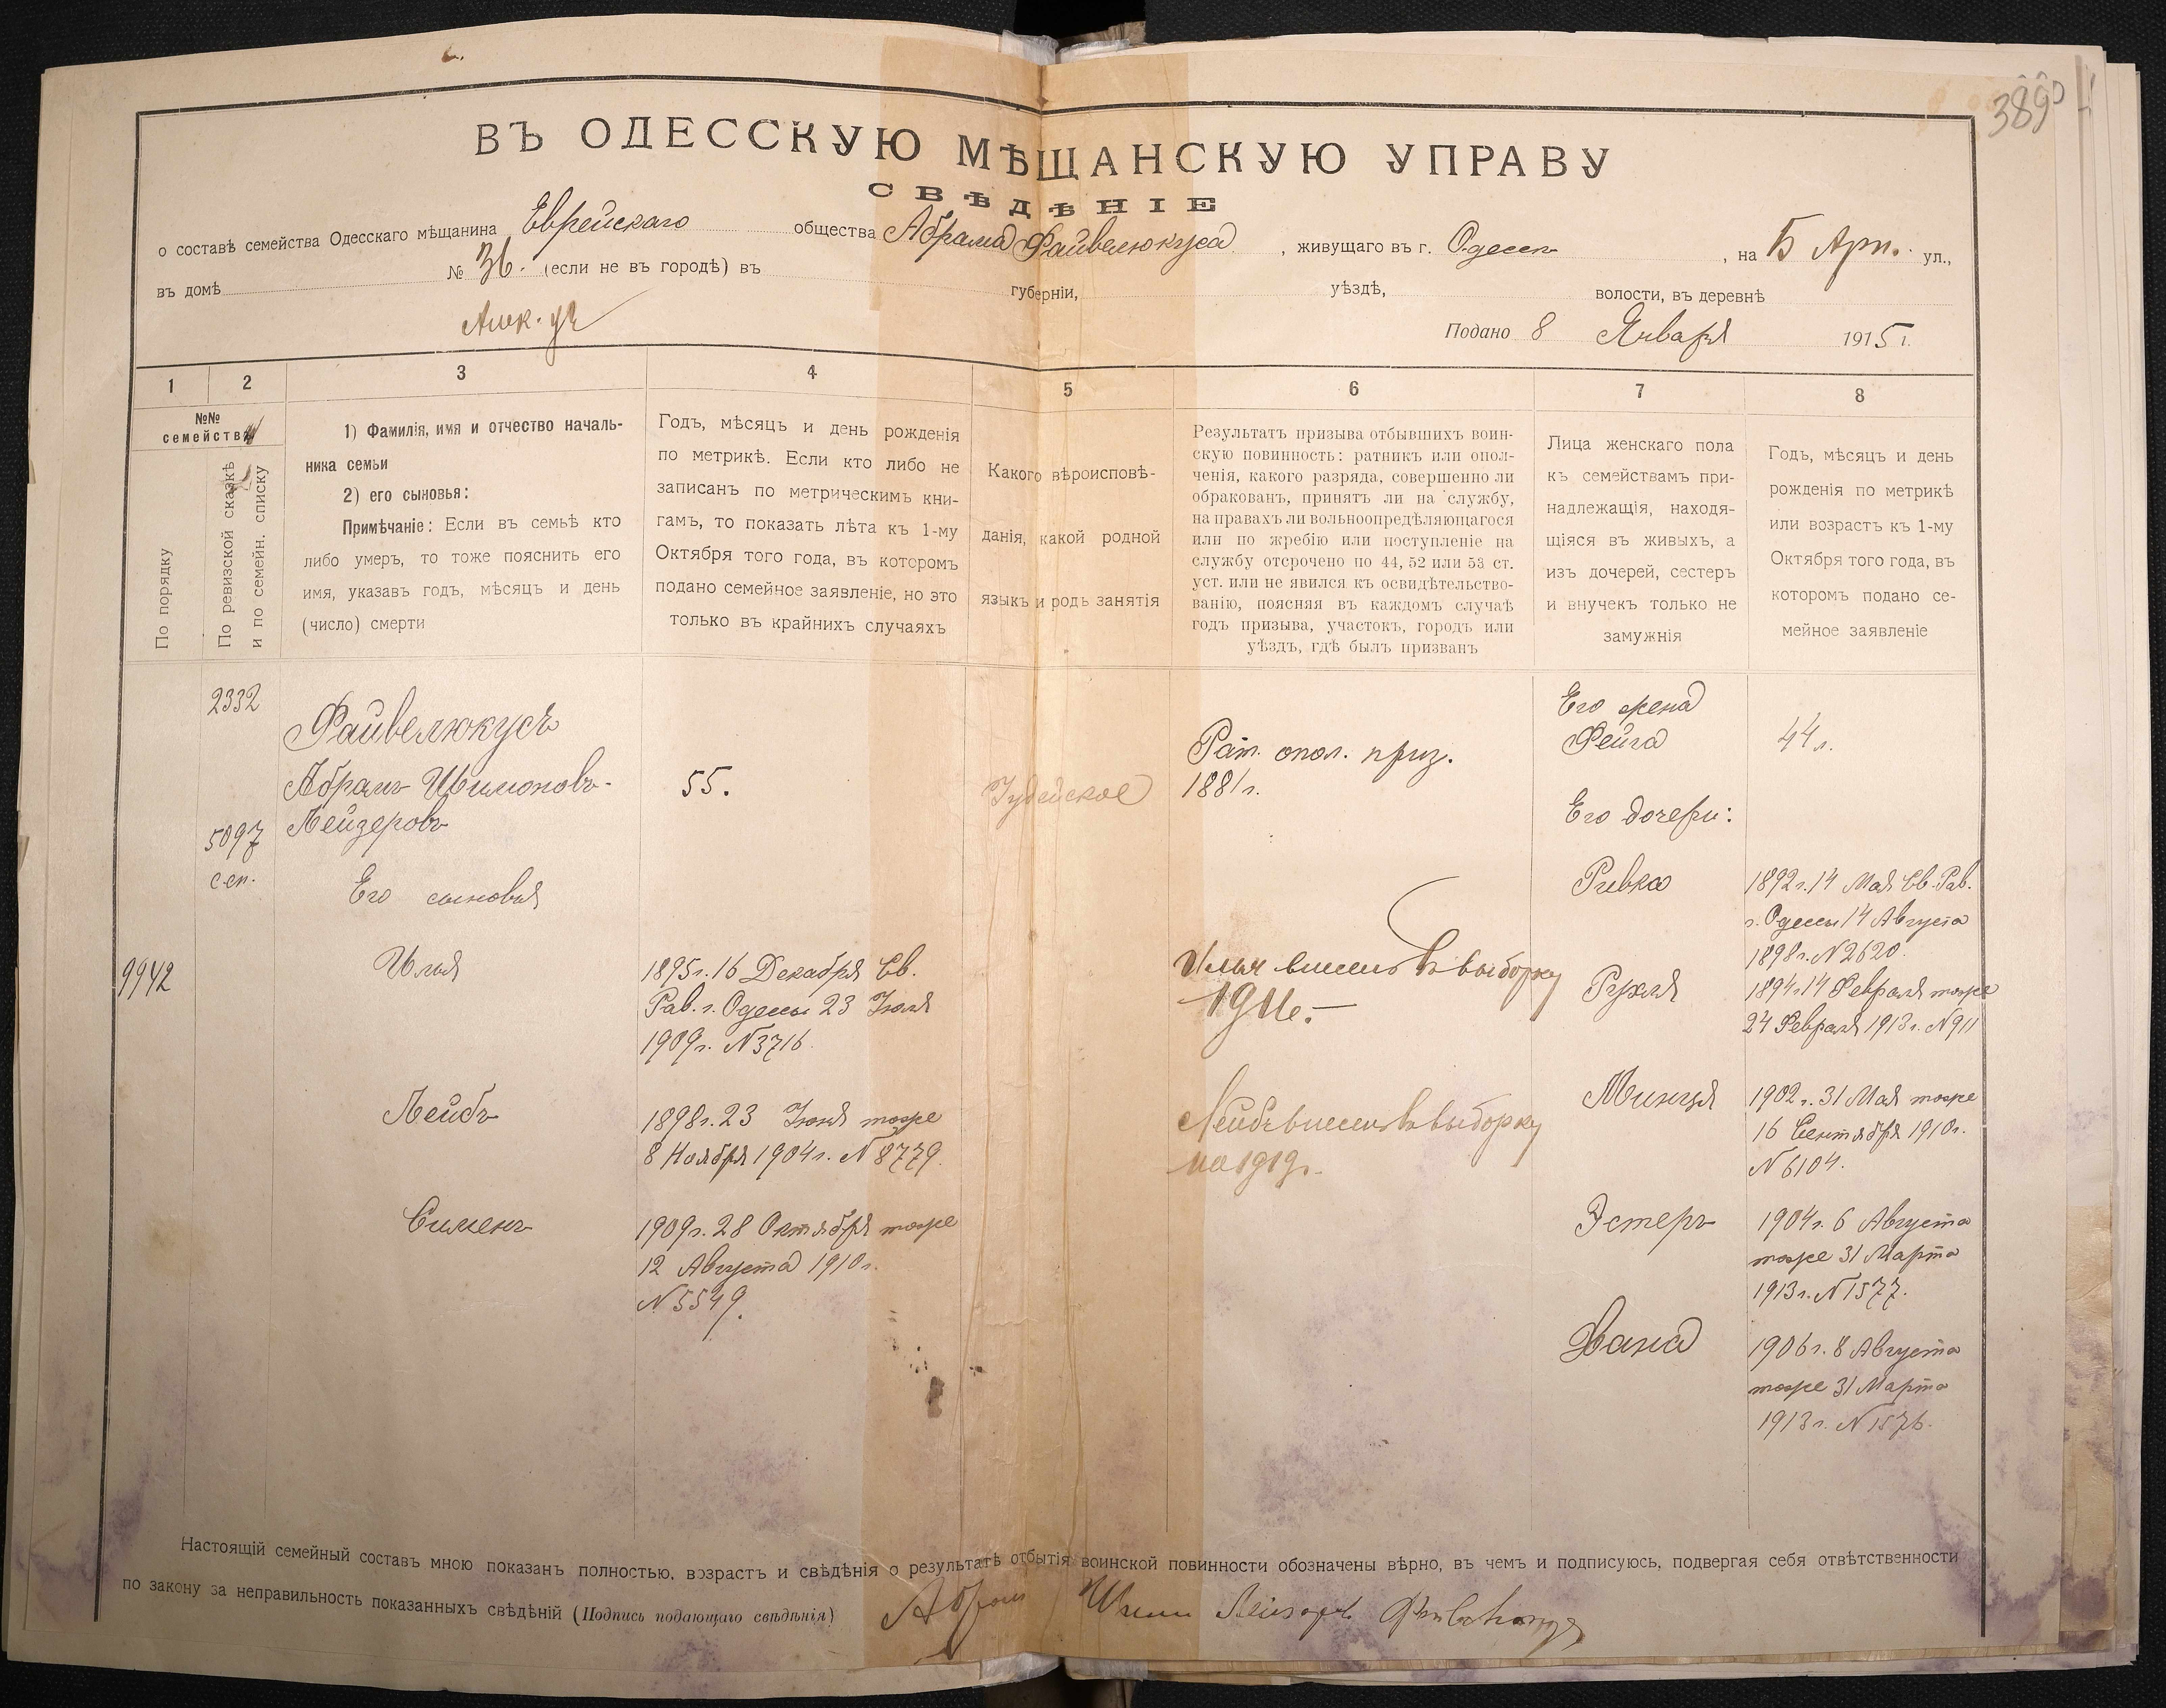 389
ВЪ ОДЕССКУЮ МѢЩАНСКУЮ УПРАВУ
СВѢДѢНІЕ
о составѣ семейства Одесскаго мѣщанина Еврейскаго общества Абрама Файвелюкуса, живущаго въ г. Одессѣ, на Б Арн. ул.,
въ домѣ № 36. (если не въ городѣ) въ губерніи, уѣздѣ, волости, въ деревнѣ
Подано 8 Января 1915 г.
1 2 3 4 5 6 7 8
№№ семействъ
По порядку
По ревизской сказкѣ
и по семейн. списку
1) Фамилія, имя и отчество началь-
ника семьи
2) его сыновья:
Примѣчаніе: Если въ семьѣ кто
либо умеръ, то тоже пояснить его
имя, указавъ годъ, мѣсяцъ и день
(число) смерти
Годъ, мѣсяцъ и день рожденія
по метрикѣ. Если кто либо не
записанъ по метрическимъ кни-
гамъ, то показать лѣта къ 1-му
Октября того года, въ которомъ
подано семейное заявленіе, но это
только въ крайнихъ случаяхъ
Какого вѣроисповѣ-
данія, какой родной
языкъ и родъ занятія
Результатъ призыва отбывшихъ воин-
скую повинность: ратникъ или опол-
ченія, какого разряда, совершенно ли
обракованъ, принятъ ли на службу,
на правахъ ли вольноопредѣляющагося
или по жребію или поступленіе на
службу отсрочено по 44, 52 или 53 ст.
уст. или не явился къ освидѣтельство-
ванію, поясняя въ каждомъ случаѣ
годъ призыва, участокъ, городъ или
уѣздъ, гдѣ былъ призванъ
Лица женскаго пола
къ семействамъ при-
надлежащія, находя-
щіяся въ живыхъ, а
изъ дочерей, сестеръ
и внучекъ только не
замужнія
Годъ, мѣсяцъ и день
рожденія по метрикѣ
или возрастъ къ 1-му
Октября того года, въ
которомъ подано се-
мейное заявленіе
2332
5097
с.сп.
9942
Файвелюкусъ
Абрамъ Шимоновъ-
Лейзеровъ
55.
Іудейское
Рат. опол. приз.
1881 г.
Его жена
Фейга
44 л.
Его дочери:
Его сыновья
Ривка
1892 г. 14 Мая Св. Рав.
г. Одессы 14 Августа
1898 г. N 2620.
Илья
1895 г. 16 Декабря Св.
Рав. г. Одессы 23 Іюля
1909 г. N 3716.
Илья внесенъ въ выборку
1916.
Рухля
1894 г 14 Февраля тоже
24 Февраля 1913 г. N 911
Лейбъ
1898 г. 23 Іюня тоже
8 Ноября 1904 г. N 8779.
Лейбъ внесенъ въ выборку
на 1919 г.
Минця
1902 г. 31 Мая тоже
16 Сентября 1910 г.
N 6104.
Сименъ
1909 г. 28 Октября тоже
12 Августа 1910 г.
N 5549.
Эстеръ
1904 г. 6 Августа
тоже 31 Марта
1913 г. N 1577.
Хана
1906 г. 8 Августа
тоже 31 Марта
1913 г. N 1576.
Настоящій семейный составъ мною показанъ полностью, возрастъ и свѣдѣнія о результатѣ отбытія воинской повинности обозначены вѣрно, въ чемъ и подписуюсь, подвергая себя отвѣтственности
по закону за неправильность показанныхъ свѣдѣній (Подпись подающаго свѣдѣнія) Абрам